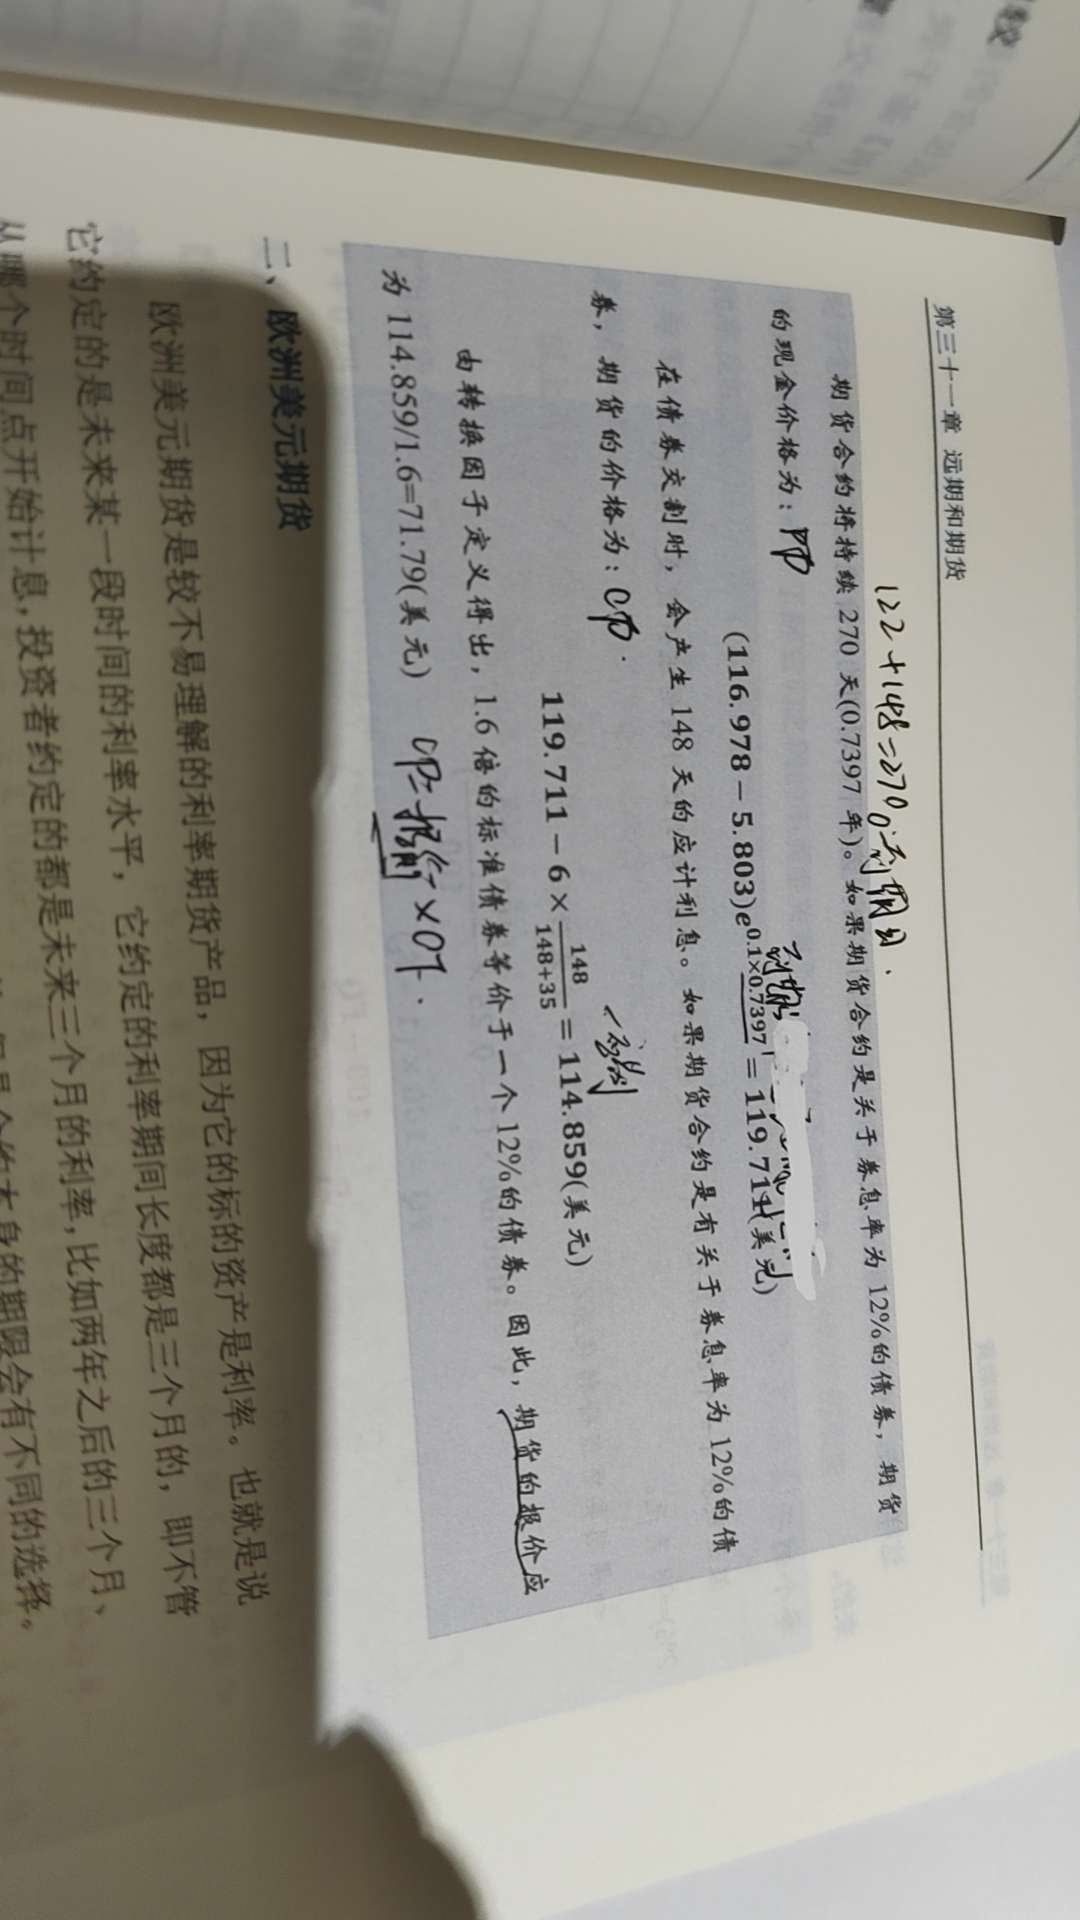 第三十一章 远期和期货
122+148=270
期货合约将持续 270 天(0.7397 年)。如果期货合约是关于券息率为 12%的债券，期货
的现金价格为：
(116.978－5.803)e^{0.1×0.7397}＝119.711(美元)
在债券交割时，会产生 148 天的应计利息。如果期货合约是有关于券息率为 12%的债
券，期货的价格为：CP.
119.711－6×148/(148+35)＝114.859(美元)
由转换因子定义得出，1.6 倍的标准债券等价于一个 12%的债券。因此，期货的报价应
为 114.859/1.6=71.79(美元)
二、欧洲美元期货
欧洲美元期货是较不易理解的利率期货产品，因为它的标的资产是利率。也就是说
它约定的是未来某一段时间的利率水平，它约定的利率期间长度都是三个月的，即不管
从哪个时间点开始计息，投资者约定的都是未来三个月的利率，比如两年之后的三个月、
的期限会有不同的选择。